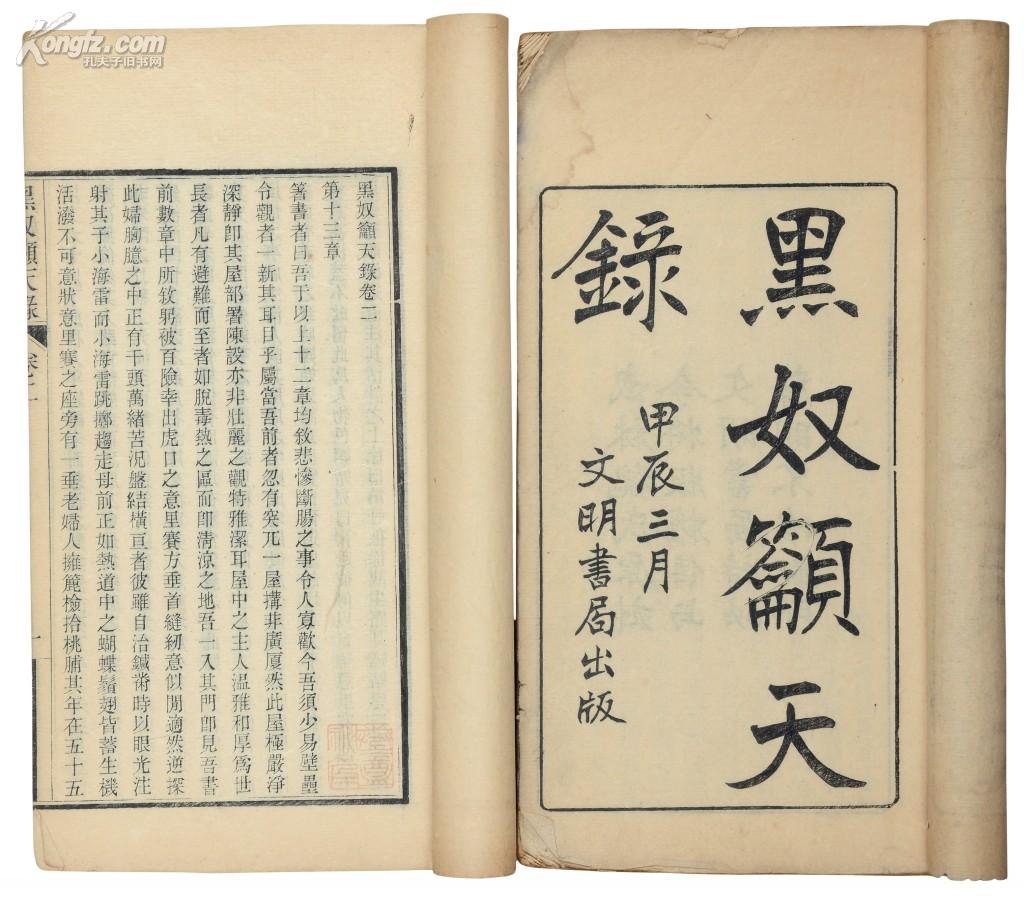 Kongfz.com
孔夫子旧书网
黑奴籲天
錄
甲辰三月
文明書局出版
黑奴籲天錄卷二
第十三章
箸書者曰吾于以上十二章均敘悲慘斷腸之事令人寡歡今吾須少易壁壘
令觀者一新其耳目乎屬當吾前者忽有突兀一屋搆非廣厦然此屋極嚴淨
深靜卽其屋部署陳設亦非壯麗之觀特雅潔耳屋中之主人温雅和厚爲世
長者凡有避難而至者如脫毒熱之區而卽淸涼之地吾一入其門卽見吾書
前數章中所敘躬被百險幸出虎口之意里賽方垂首縫紉意似閒適然逆探
此婦胸臆之中正有千頭萬緒苦況盤結橫亘者彼雖自治鍼黹時以眼光注
射其子小海雷而小海雷跳擲趨走母前正如熱道中之蝴蝶鬚翅皆蓄生機
活潑不可意狀意里賽之座旁有一垂老婦人擁箆檢拾桃脯其年在五十五
黑奴籲天錄
卷二
一